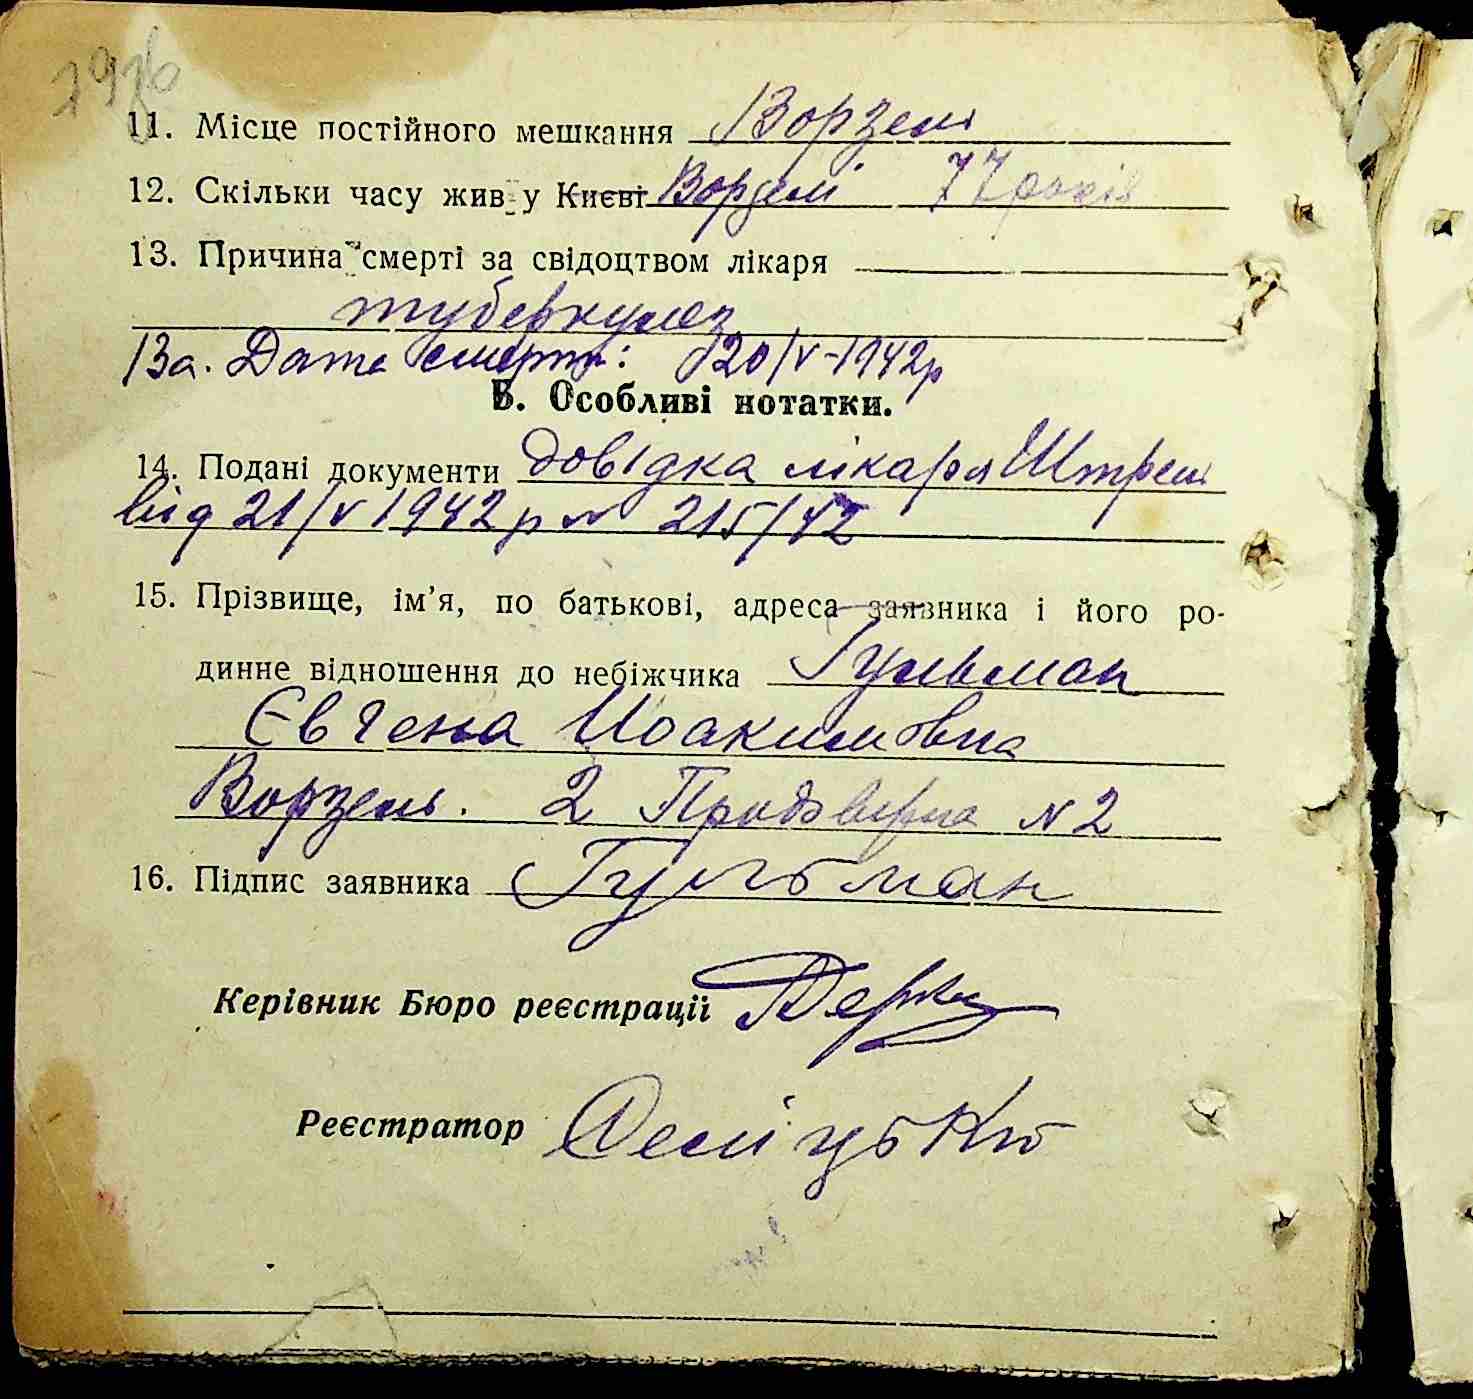 11. Місце постійного мешкання Ворзель
12. Скільки часу жив у Києві Ворзелі 77 років
13. Причина смерті за свідоцтвом лікаря
туберкульоз
13а. Дата смерти: 20/V-1942р
В. Особливі нотатки.
14. Подані документи довідка лікаря Штрем
від 21/V 1942 р № 215/42
15. Прізвище, ім'я, по батькові, адреса заявника і його ро-
динне відношення до небіжчика Гульман
Євгенья Иоакимовна
Ворзель. 2 N 2
16. Підпис заявника Гульман
Керівник Бюро реєстрації
Реєстратор